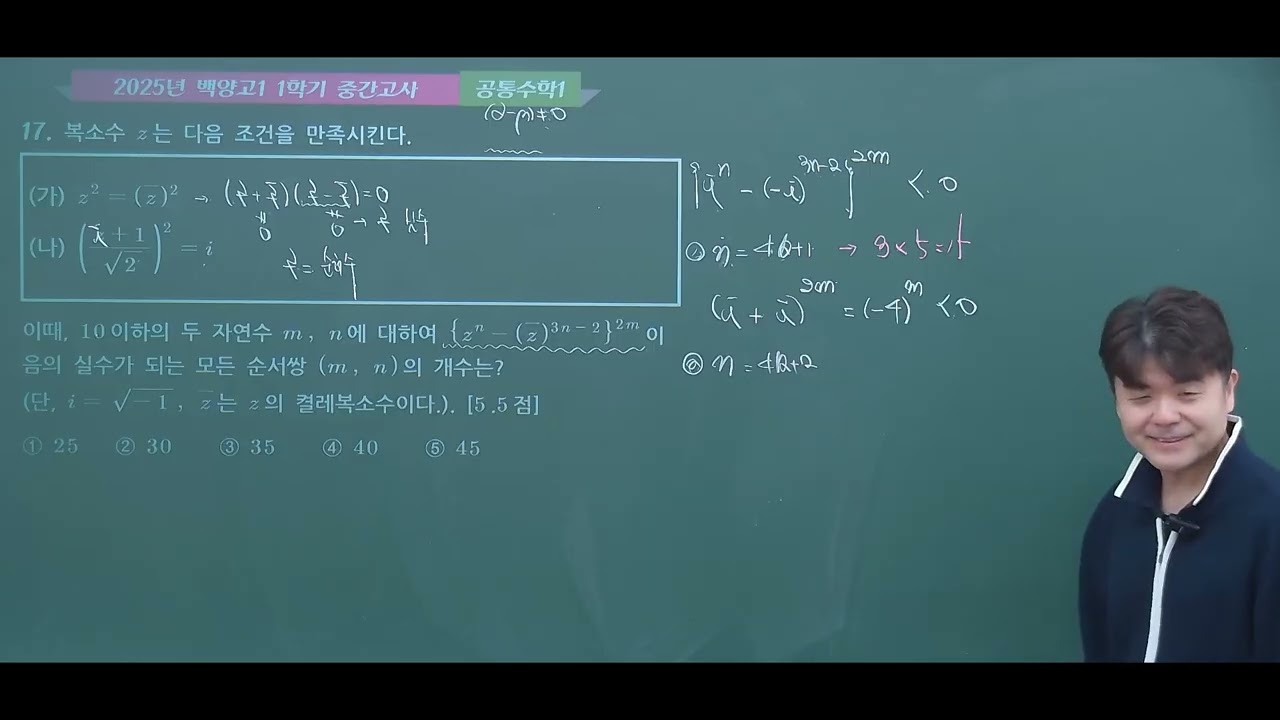 2025년 백양고1 1학기 중간고사 공통수학1
17. 복소수 z는 다음 조건을 만족시킨다.
(가) z² = (z̄)² → (z+z̄)(z-z̄)=0
(나) ((i+1)/√2)² = i
이때, 10이하의 두 자연수 m, n에 대하여 {zⁿ-(z̄)³ⁿ⁻²}²ᵐ이
음의 실수가 되는 모든 순서쌍 (m, n)의 개수는?
(단, i = √-1, z̄는 z의 켤레복소수이다.). [5.5점]
① 25 ② 30 ③ 35 ④ 40 ⑤ 45
{iⁿ - (-i)³ⁿ⁻²}²ᵐ < 0
① n = 4k+1 → 3 × 5 = 15
(i + i)²ᵐ = (-4)ᵐ < 0
② n = 4k+2